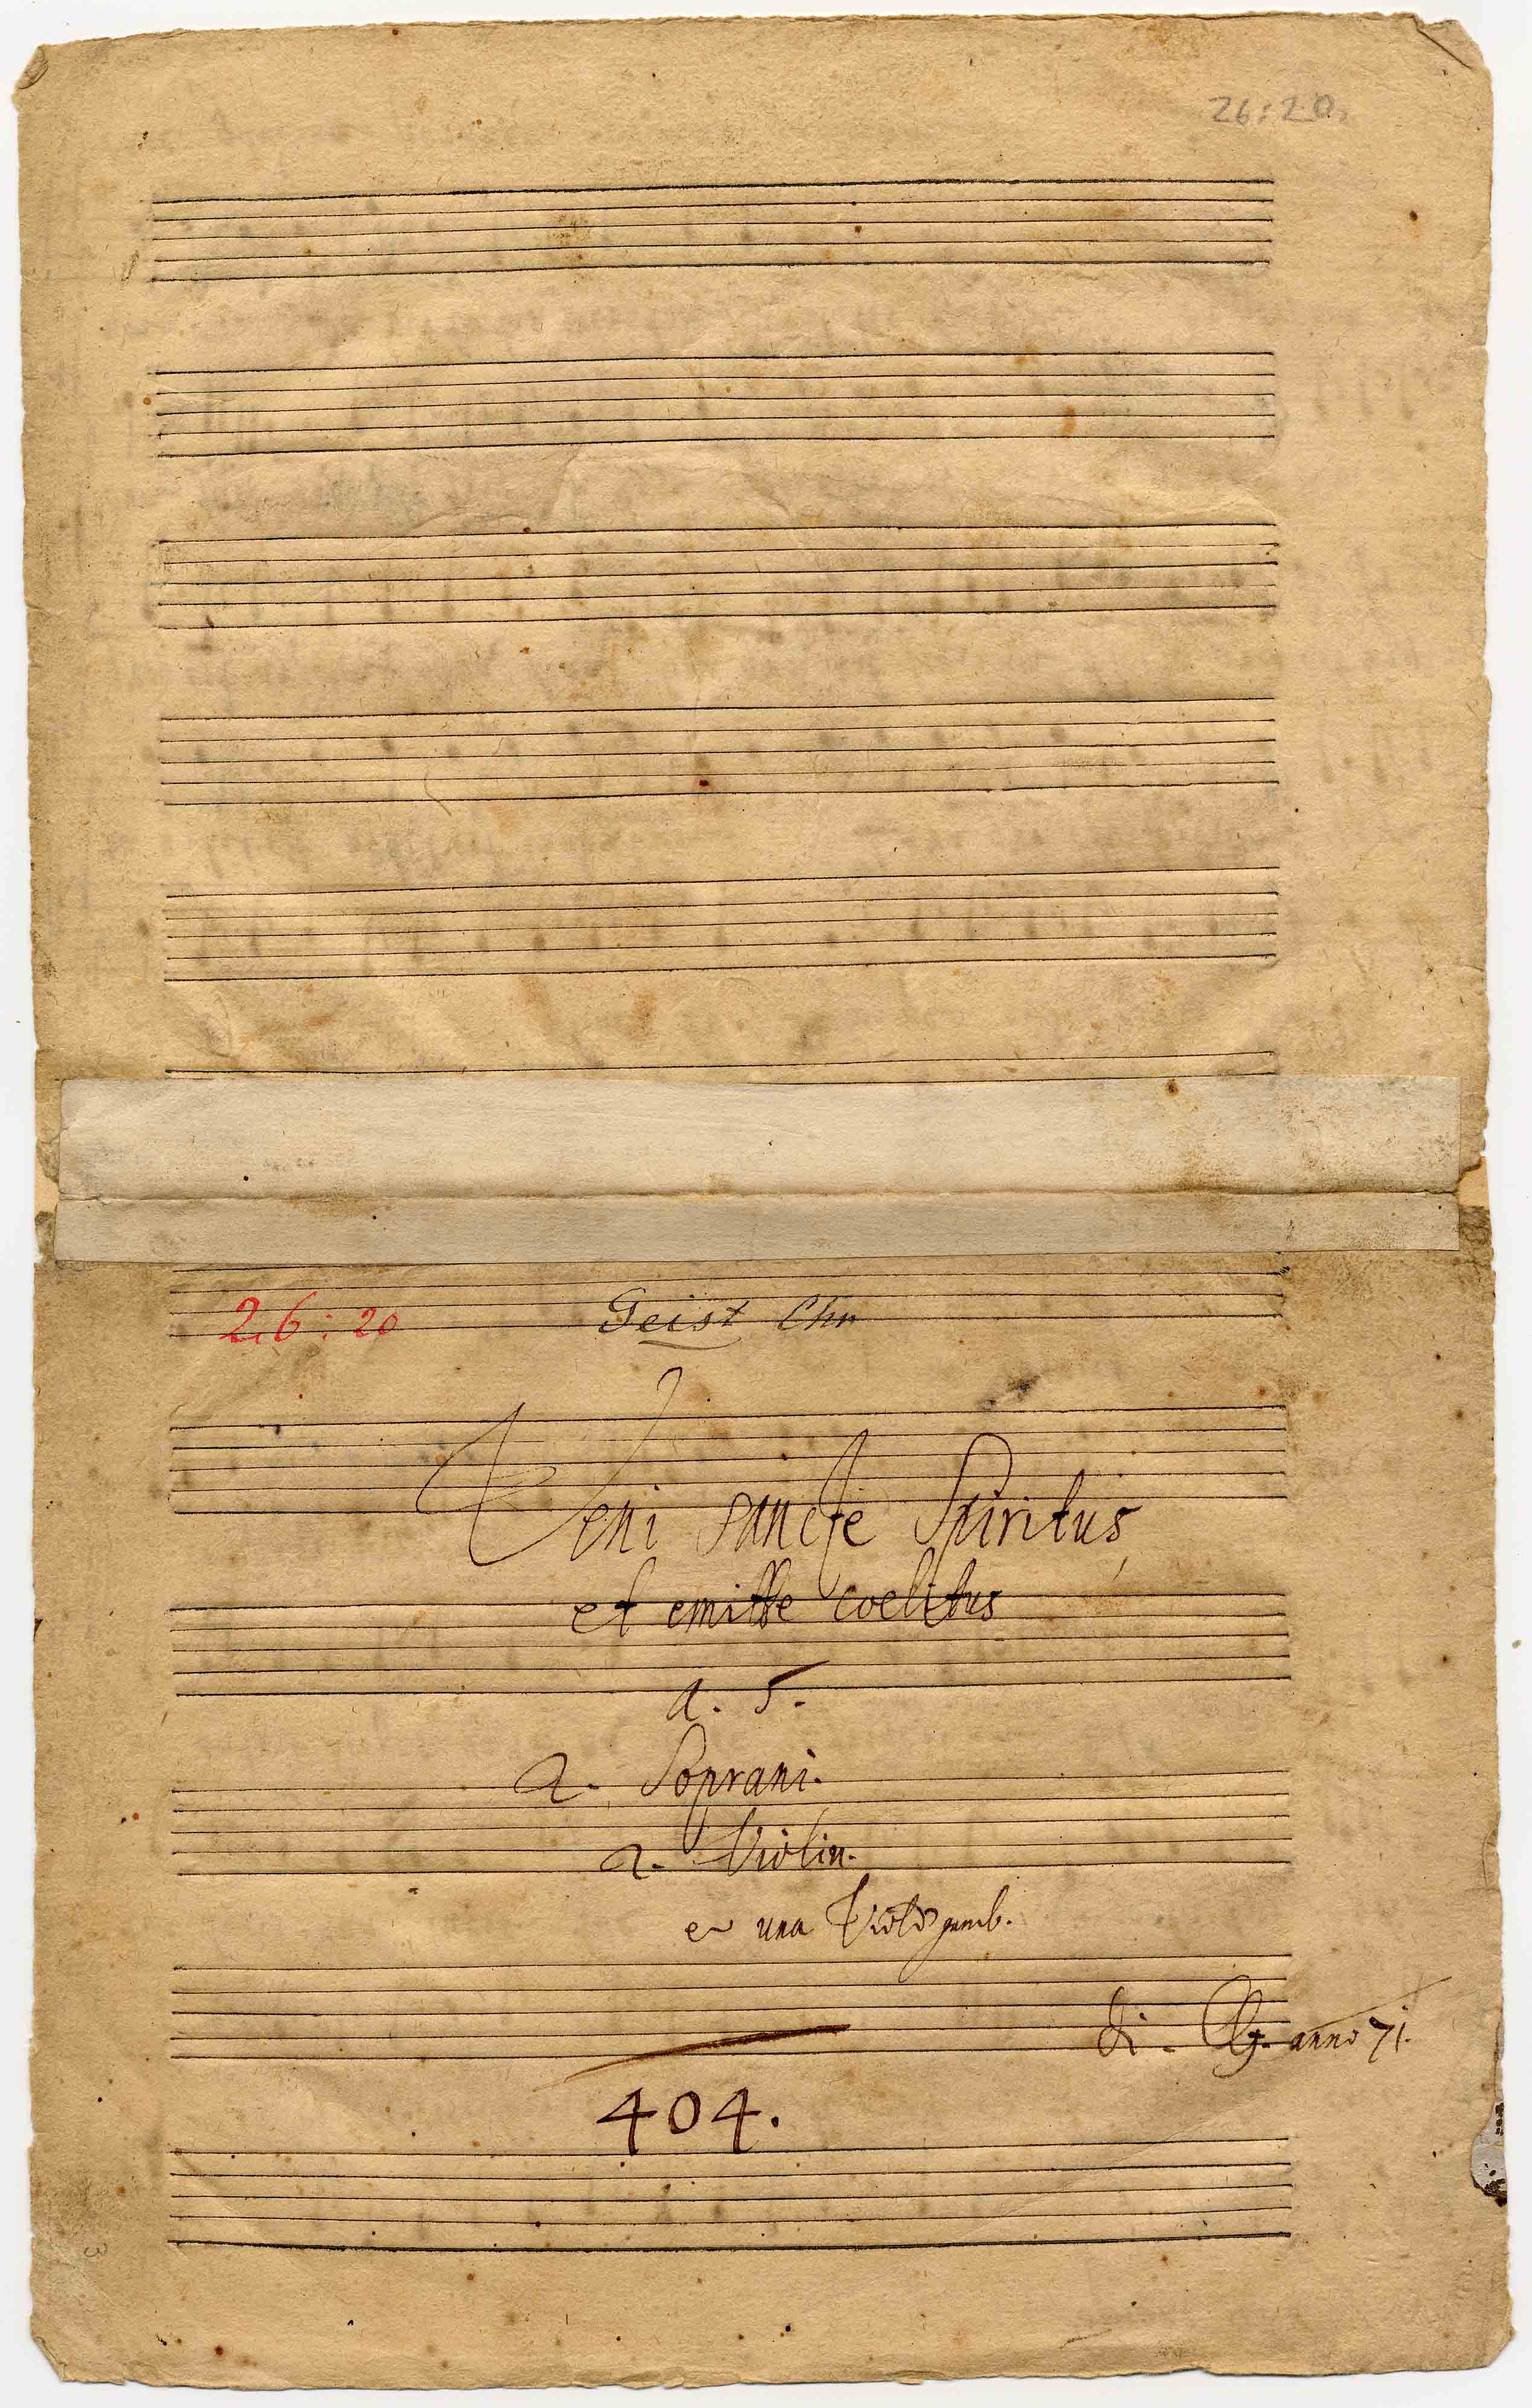 26:20.
26:20 Geist Chr
Veni sancte Spiritus,
et emitte coelitus
a. 5.
2. Soprani.
2. Violin.
e una Viold gamb.
di. anno 71.
404.
3